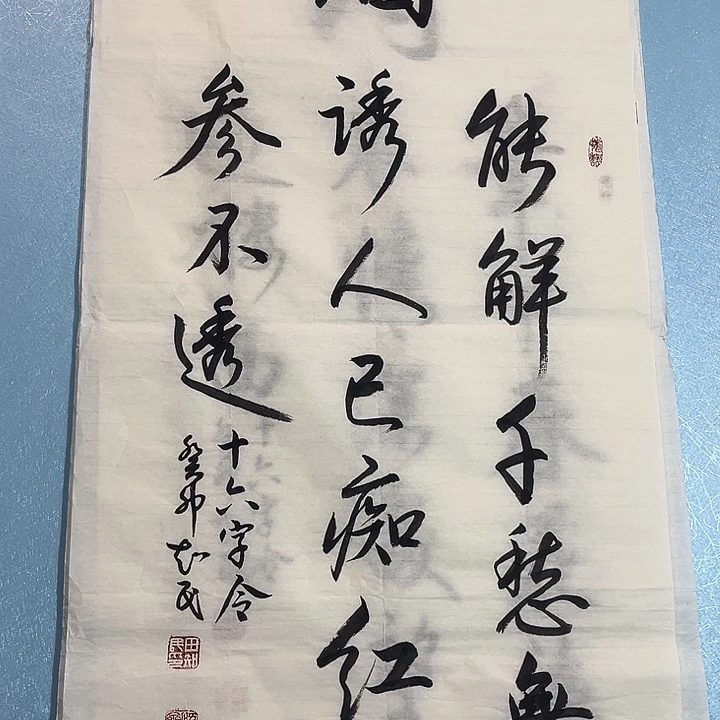 能解千愁無
诱人已痴红
参不透
十六字令
癸卯知民